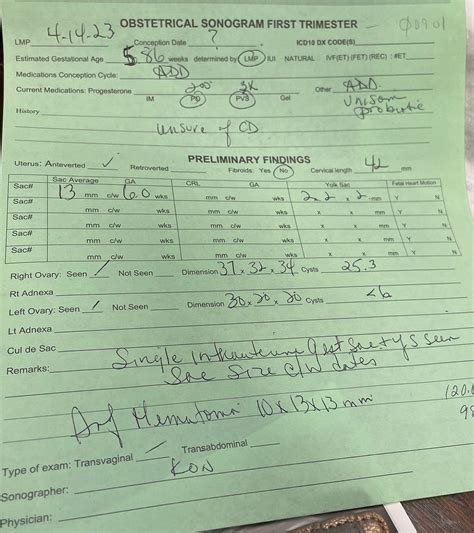 OBSTETRICAL SONOGRAM FIRST TRIMESTER 00901
LMP 4-14-23 Conception Date ? ICD10 DX CODE(S)
Estimated Gestational Age 5.86 weeks determined by LMP IUI NATURAL IVF(ET) (FET) (REC) : #ET
Medications Conception Cycle: ADD
Current Medications: Progesterone 200 3x Other ADD
IM PO PVS Gel Unisom probiotic
History
unsure of CD
PRELIMINARY FINDINGS
Uterus: Anteverted ✓ Retroverted Fibroids: Yes No Cervical length 42 mm
Sac# Sac Average GA CRL GA Yolk Sac Fetal Heart Motion
Sac# 13 mm c/w 6.0 wks mm c/w wks 2 x 2 x 2 mm Y N
Sac# mm c/w wks mm c/w wks x x mm Y N
Sac# mm c/w wks mm c/w wks x x mm Y N
Sac# mm c/w wks mm c/w wks x x mm Y N
Sac# mm c/w wks mm c/w wks x x mm Y N
Right Ovary: Seen Not Seen Dimension 37 x 32 x 34 Cysts 25.3
Rt Adnexa
Left Ovary: Seen Not Seen Dimension 30 x 20 x 20 Cysts <6
Lt Adnexa
Cul de Sac
Remarks: Single intrauterine gest sac + YS seen
Sac size c/w dates
Hematoma 10 x 13 x 13 mm 120.
Type of exam: Transvaginal Transabdominal
Sonographer:
Physician: